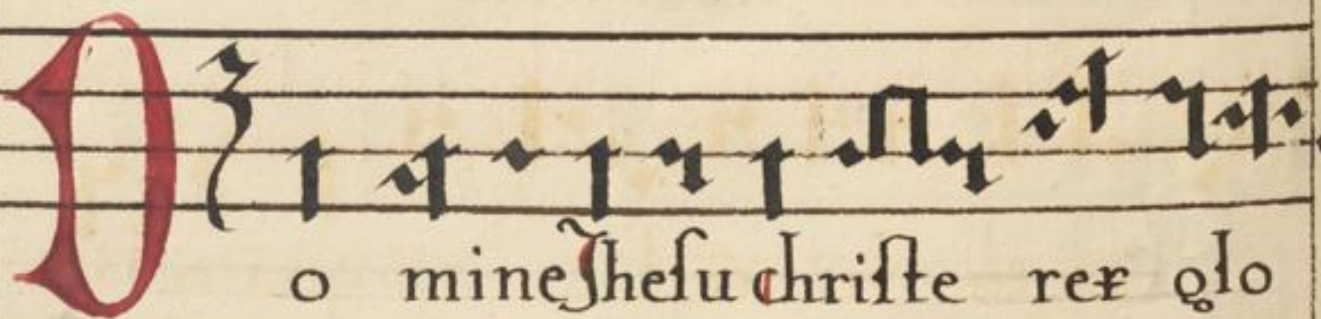 Do mine Jhesu christe rex glo